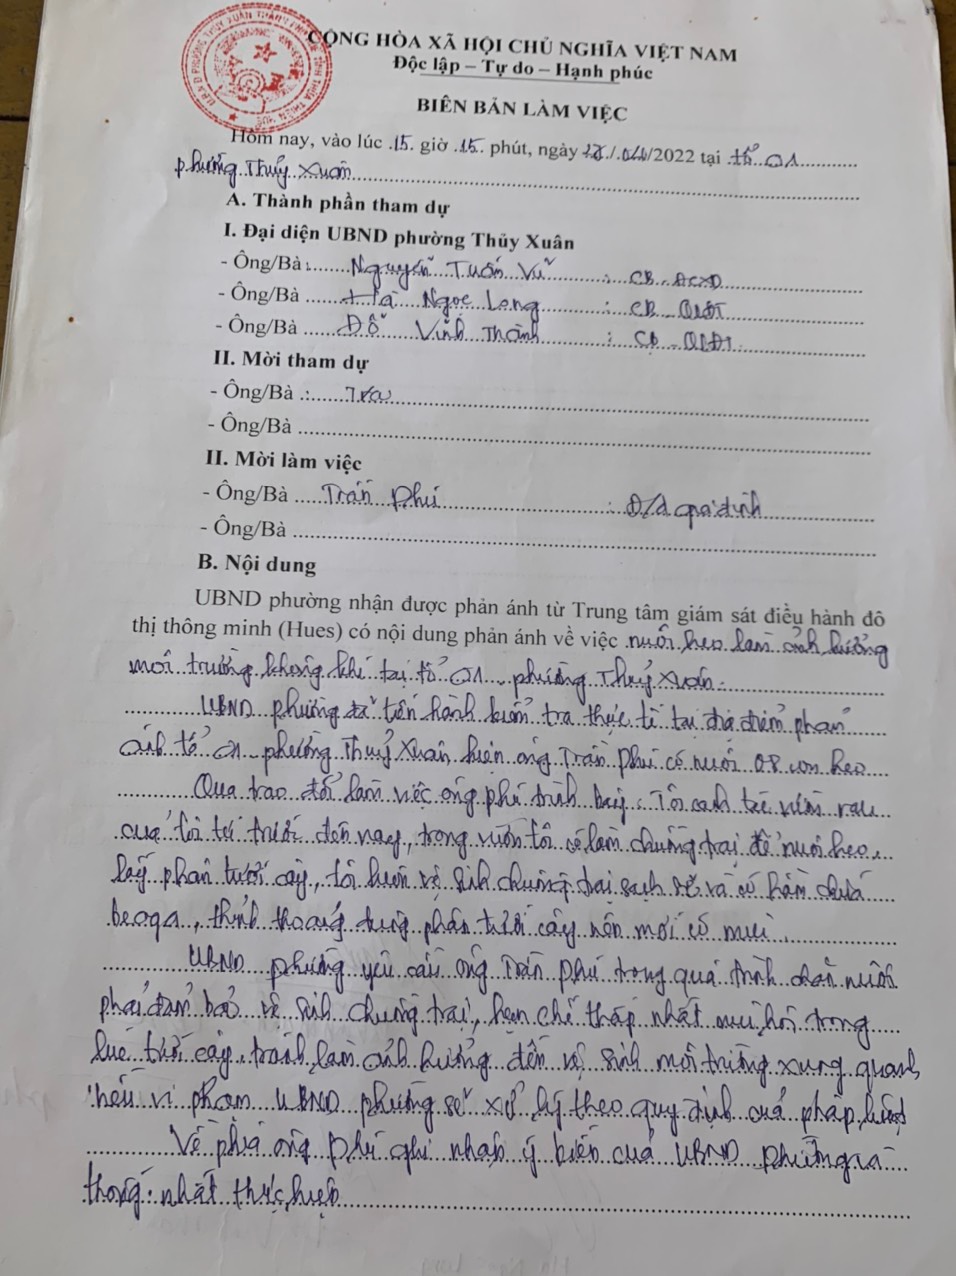 CỘNG HÒA XÃ HỘI CHỦ NGHĨA VIỆT NAM
Độc lập – Tự do – Hạnh phúc
BIÊN BẢN LÀM VIỆC
Hôm nay, vào lúc .15. giờ .15. phút, ngày /04/2022 tại tổ 01
phường Thuỷ Xuân
A. Thành phần tham dự
I. Đại diện UBND phường Thủy Xuân
- Ông/Bà : Nguyễn Tuấn Vũ : CB - ĐCXD
- Ông/Bà Hà Ngọc Long : CB - QLĐT
- Ông/Bà Đỗ Vĩnh Thành : CB - QLĐT
II. Mời tham dự
- Ông/Bà .:
- Ông/Bà
II. Mời làm việc
- Ông/Bà Trần Phú : Đ/d gia đình
- Ông/Bà
B. Nội dung
UBND phường nhận được phản ánh từ Trung tâm giám sát điều hành đô
thị thông minh (Hues) có nội dung phản ánh về việc nuôi heo làm ảnh hưởng
môi trường không khí tại tổ 01, phường Thuỷ Xuân.
UBND phường đã tiến hành kiểm tra thực tế tại địa điểm phản
ánh tổ 01 phường Thuỷ Xuân hiện ông Trần Phú có nuôi 08 con heo
Qua trao đổi làm việc ông Phú trình bày: Tôi canh tác vườn rau
của tôi từ trước đến nay, trong vườn tôi có làm chuồng trại để nuôi heo,
lấy phân tưới cây, tôi luôn vệ sinh chuồng trại sạch sẽ và có hầm chứa
beoga, thỉnh thoảng dùng phân tưới cây nên mới có mùi.
UBND phường yêu cầu ông Trần Phú trong quá trình chăn nuôi
phải đảm bảo vệ sinh chuồng trại, hạn chế thấp nhất mùi hôi trong
lúc tưới cây, tránh làm ảnh hưởng đến vệ sinh môi trường xung quanh
nếu vi phạm UBND phường sẽ xử lý theo quy định của pháp luật
Về phía ông Phú ghi nhận ý kiến của UBND phường và
thống nhất thực hiện